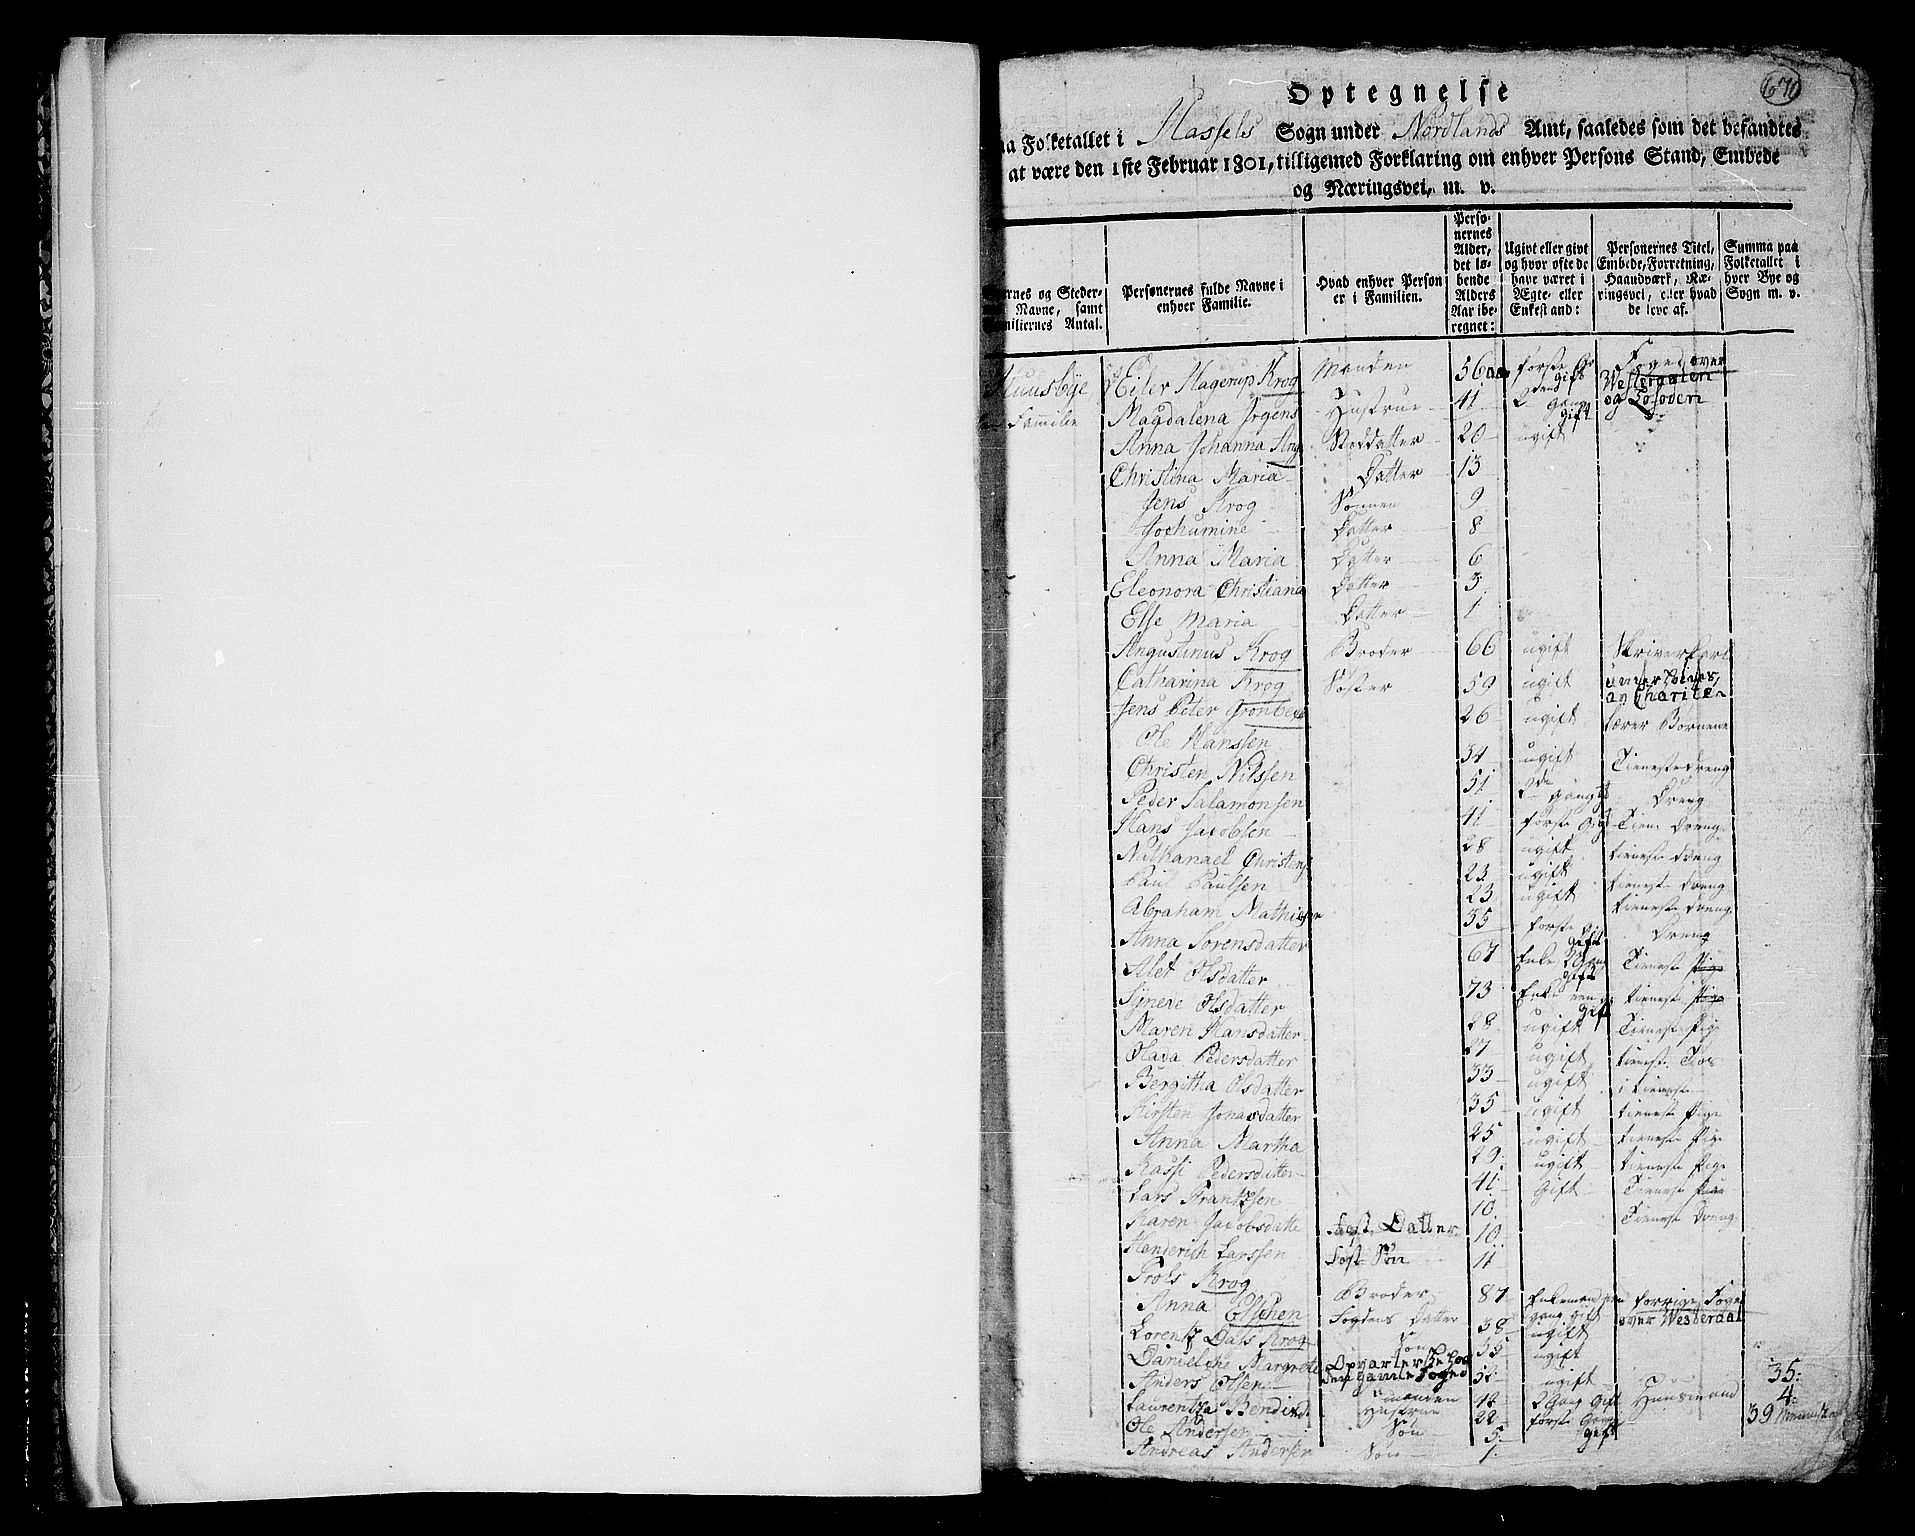 670
Optegnelse
Folketallet i Hassels Sogn under Nordlands Amt, saaledes som det befandtes
at være den 1ste Februar 1801, tilligemed Forklaring om enhver Persons Stand, Embede
og Næringsvei, m. v.
og Steders Navne, samt Familiernes Antal.
Personernes fulde Navne i enhver Familie.
Hvad enhver Person er i Familien.
Personernes Alder, det løbende Alders Aar iberegnet:
Ugivt eller givt og hvor ofte de have været i Ægte- eller Enkestand:
Personernes Titel, Embede, Forretning, Haandværk, Næringsvei, eller hvad de leve af.
Summa paa Folketallet i hver Bye og Sogn m. v.
Huusbye Eiler Hagerup Krog Manden 56 første Foged over
Familie Magdalena Jrgens Hustrue 41 2den gang gift Westeraalen og Lofoden
Anna Johanna Stoddatter 20 ugift
Christina Maria Datter 13
Jens Krog Sønnen 9
Jochumine Datter 8
Anna Maria Datter 6
Eleonora Christiana Datter 3
Else Maria Datter 1
Augustinus Krog Broder 66 ugift Skriverkarl
Catharina Krog Søster 59 ugift underholdes av Charite
Jens Peter Grønbek 26 ugift lærer Børnene
Ole Hanssen 34 ugift Tienestedreng
Christen Nilssen 51 2de gang Dreng
Peder Salamonsen 41 første Tien. Dreng
Hans Jacobsen 28 ugift tieneste dreng
Nathanael Christens 23 ugift tieneste dreng
Paul Paulsen 23 ugift tieneste dreng
Abraham Mathisen 35 første gift Dreng
Anna Sørensdatter 67 Enke 2 Gang gift Tieneste Pige
Alet Olsdatter 73 Enke en gift tieneste Pige
Sijnere Olsdatter 28 ugift Tieneste Pige
Maren Hansdatter 27 ugift tieneste
Olava Pedersdatter 33 ugift i tieneste
Bergitha Olsdatter 35 ugift tieneste Pige
Kirsten Jonasdatter 25 ugift tieneste Pige
Anna Martha 29 ugift tieneste Pige
Massi Pedersdatter 41 gift Tieneste
Lars Frantzsen 10 Tieneste Dreng
Karen Jacobsdatte Fost. Datter 10
Henderich Larssen Fost Søn 11
Trols Krog Broder 87 Enkemand gang gift forrige Foge over Westerdal
Anna Elschen Fogdens Datter 38 ugift
Lorentz Dals Krog Søn 35 ugift
Danielche Margrete Opvarter den gamle Foged ugift 35:
Anders Olsen manden 2 Gang gift Huusmand 4:
Laurentza Bendix Hustrue 28 første Gang gift 39
Ole Andersen Søn 5
Andreas Andersen Søn 1